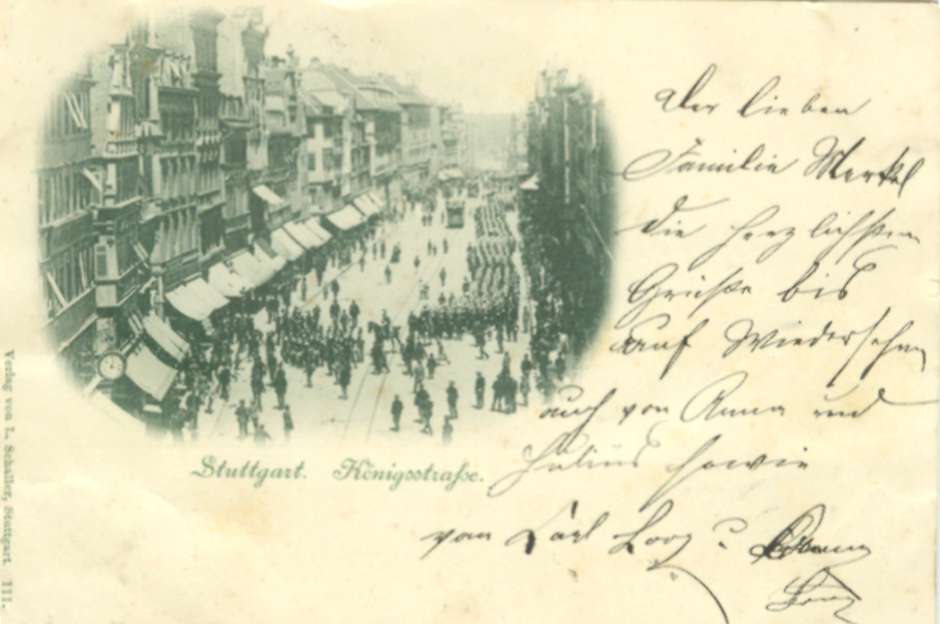 Der lieben
Familie Merkel
die herzlichsten
Grüße bis
auf Wiedersehn
auch von Anna und
Julius sowie
von Karl Looz
Stuttgart. Königsstraße.
Verlag von L. Schaller, Stuttgart. 111.